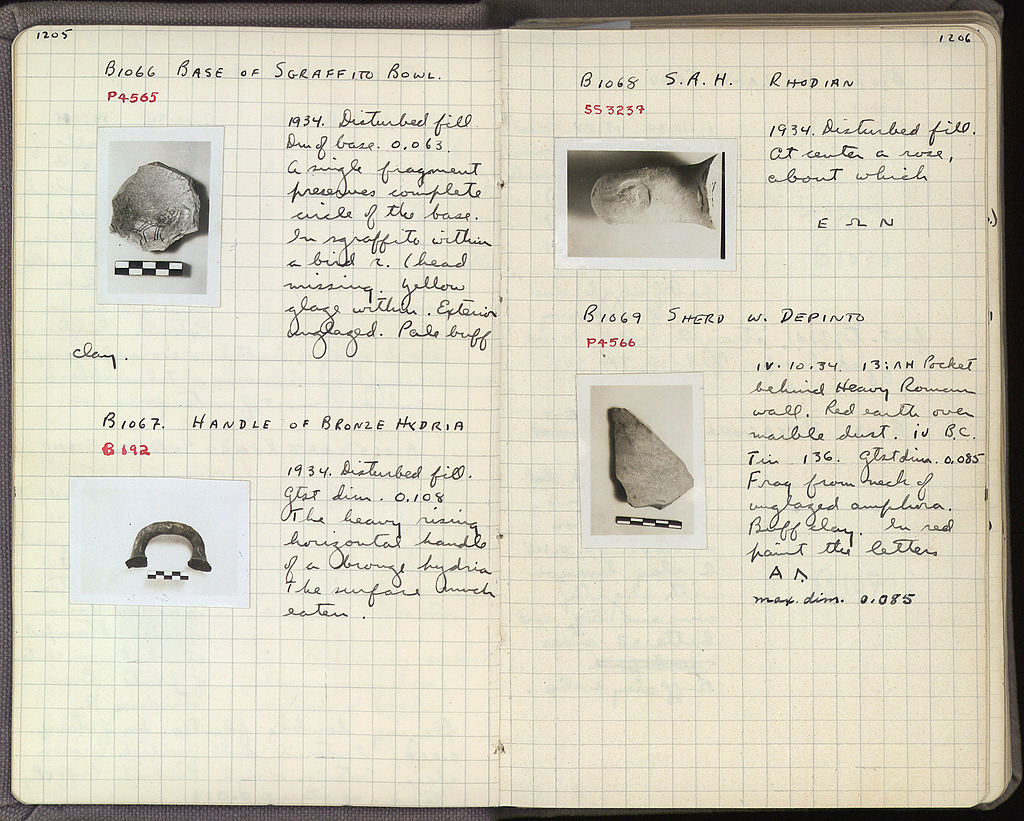 1205
B1066 BASE OF SGRAFFITO BOWL.
P4565
1934. Disturbed fill.
Dm of base. 0.063.
A single fragment
preserves complete
circle of the base.
In sgraffito within
a bird r. (head
missing. Yellow
glaze within. Exterior
unglazed. Pale buff
clay.
B1067. HANDLE OF BRONZE HYDRIA
B 192
1934. Disturbed fill.
Gtst dim. 0.108
The heavy rising
horizontal handle
of a bronze hydria
The surface much
eaten.
1206
B1068 S.A.H. RHODIAN
SS3237
1934. Disturbed fill.
At center a rose,
about which
Ε Ω Ν
B1069 SHERD W. DEPINTO
P4566
IV.10.34. 13:ΛΗ Pocket
behind Heavy Roman
wall. Red earth over
marble dust. IV B.C.
Tin 136. Gtst dim. 0.085
Frag from neck of
unglazed amphora.
Buff clay. In red
paint the letters
Α Λ
max. dim. 0.085